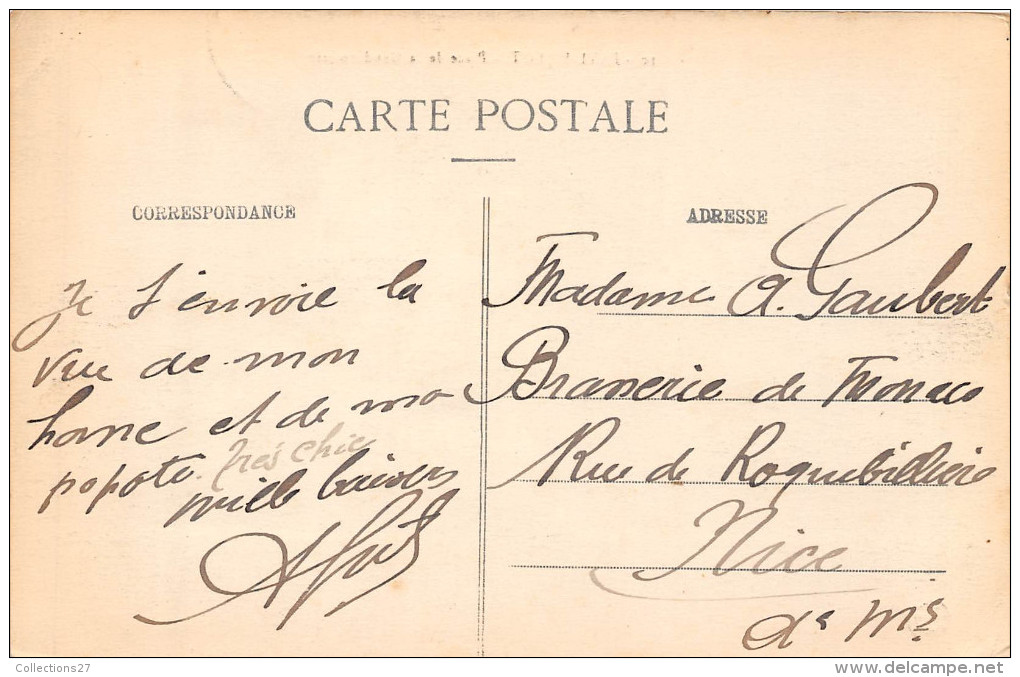 CARTE POSTALE
CORRESPONDANCE
Je t'envoie la
vue de mon
home et de ma
popote. très chic
mille baisers
ADRESSE
Madame A. Gaubert
Brasserie de Monaco
Rue de Roquebillière
Nice
As Ms
Collections27
www.delcampe.net